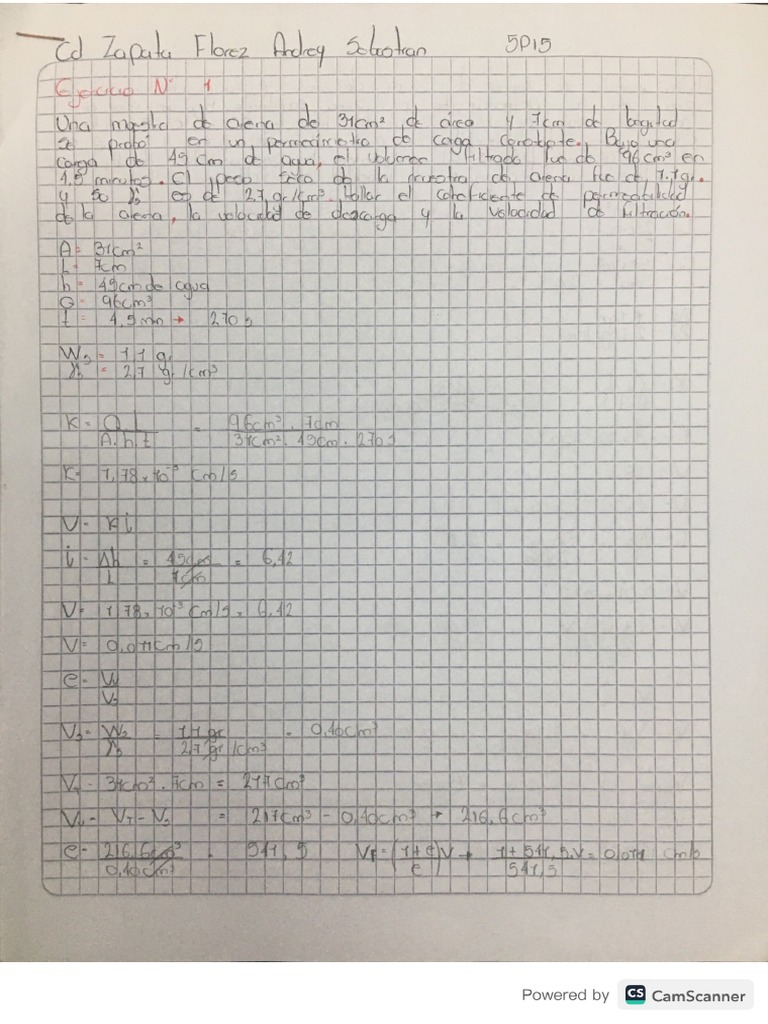 Cd Zapata Florez Andrey Sebastian 5P15
Ejercicio N° 1
Una muestra de arena de 31cm² de área y 7cm de longitud
se probó en un permeámetro de carga constante. Bajo una
carga de 49 cm de agua, el volumen filtrado fue de 96 cm³ en
4,5 minutos. El peso seco de la muestra de arena fue de 1.1gr.
y su γs es de 2,7 gr/cm³. Hallar el coeficiente de permeabilidad
de la arena, la velocidad de descarga y la velocidad de filtración.
A= 31cm²
L= 7cm
h= 49cm de agua
Q= 96cm³
t= 4,5 min → 270 s
Ws = 1,1 gr
γs = 2,7 gr/cm³
K= Q.L / A.h.t = 96cm³ . 7cm / 31cm² . 45cm . 270s
K= 1,78 x 10⁻³ cm/s
V= Ki
i= Δh / L = 45cm / 7cm = 6,42
V= 1,78 x 10⁻³ cm/s x 6,42
V= 0,011cm/s
e= Vv / Vs
Vs= Ws / γs = 1,1 gr / 2,7 gr/cm³ = 0,40cm³
Vt= 31cm² . 7cm = 217cm³
Vv= VT - Vs = 217cm³ - 0,40cm³ → 216,6cm³
e= 216,6cm³ / 0,40cm³ = 541,5 VF= (1+e / e) V → 1+541,5 / 541,5 .V= 0,011 cm/s
Powered by CS CamScanner